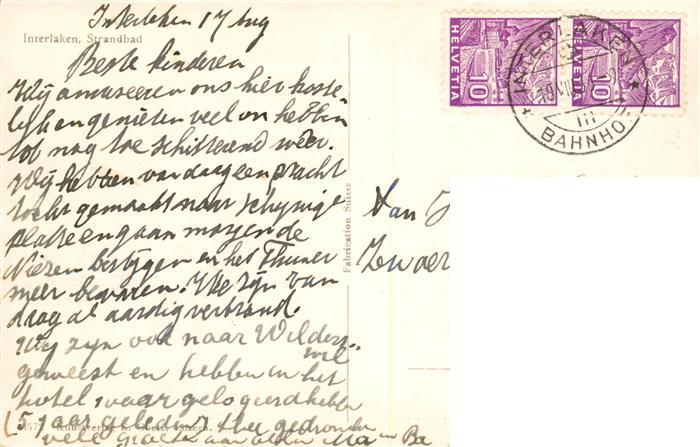 Interlaken 17 Aug
Interlaken, Strandbad
Beste kinderen
Wij amuseeren ons hier koste-
lijk en genieten veel en hebben
tot nog toe schitterend weer.
Wij hebben vandaag een pracht
tocht gemaakt naar Schynige
platte en gaan morgen de
Niezen bestijgen en het Thuner
meer bevaren. We zijn van
daag al aardig verbrand.
Wij zijn ook naar Wilders-
wil
geweest en hebben in het
hotel, waar gelogeerd hebben
(5 jaar geleden thee gedronken
vele groeten aan allen Ma en Pa
HELVETIA 10
HELVETIA 10
INTERLAKEN
BAHNHOF
Fabrication Suisse